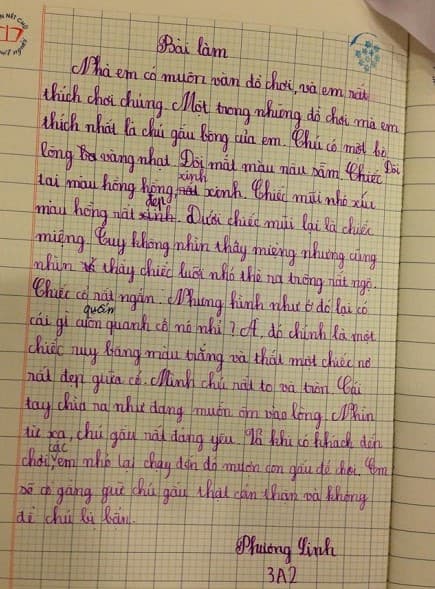 Bài làm
Nhà em có muôn vàn đồ chơi, và em rất
thích chơi chúng. Một trong những đồ chơi mà em
thích nhất là chú gấu bông của em. Chú có một bộ
lông vàng nhạt. Đôi mắt màu nâu sẫm. Chiếc Đôi
tai màu hồng hồng, xinh xinh. Chiếc mũi nhỏ xíu
màu hồng rất đẹp. Dưới chiếc mũi lại là chiếc
miệng. Tuy không nhìn thấy miệng nhưng cũng
nhìn thấy chiếc lưỡi nhỏ thè ra trông rất ngộ.
Chiếc cổ rất ngắn. Nhưng hình như ở đó lại có
cái gì quấn quanh cổ nó nhỉ? À, đó chính là một
chiếc ruy băng màu trắng và thắt một chiếc nơ
rất đẹp giữa cổ. Mình chú rất to và tròn. Cái
tay chìa ra như đang muốn ôm vào lòng. Nhìn
từ xa, chú gấu rất đáng yêu. Và khi có khách đến
chơi, các em nhỏ lại chạy đến đó mượn con gấu để chơi. Em
sẽ cố gắng giữ chú gấu thật cẩn thận và không
để chú bị bẩn.
Phương Linh
3A2